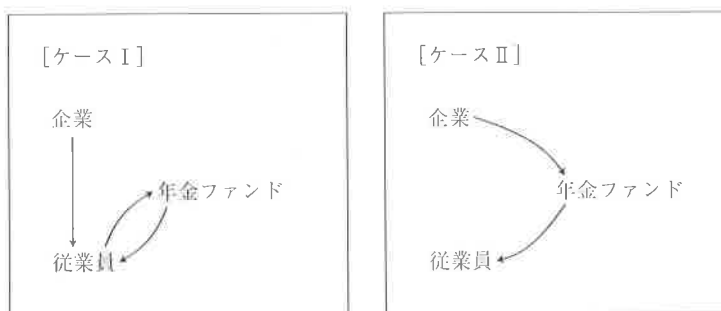 [ケースⅠ]
企業
年金ファンド
従業員
[ケースⅡ]
企業
年金ファンド
従業員